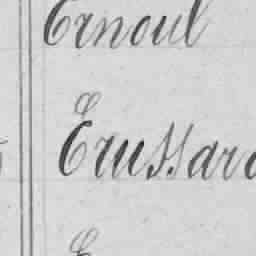 Ernoul
Erussard